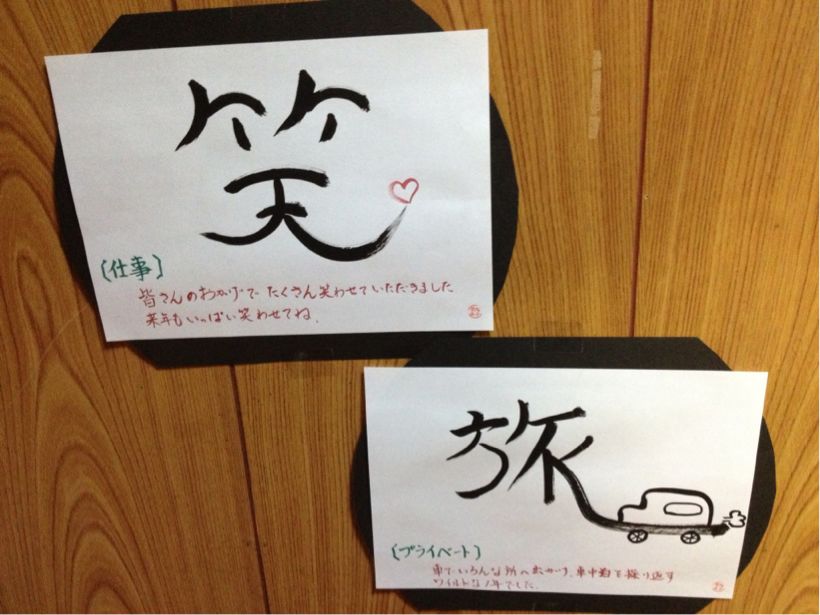 笑
〔仕事〕
皆さんのおかげで たくさん笑わせていただきました
来年もいっぱい笑わせてね.
旅
〔プライベート〕
車でいろんな所へおでかけ、車中泊を繰り返す
ワイルドな1年でした.